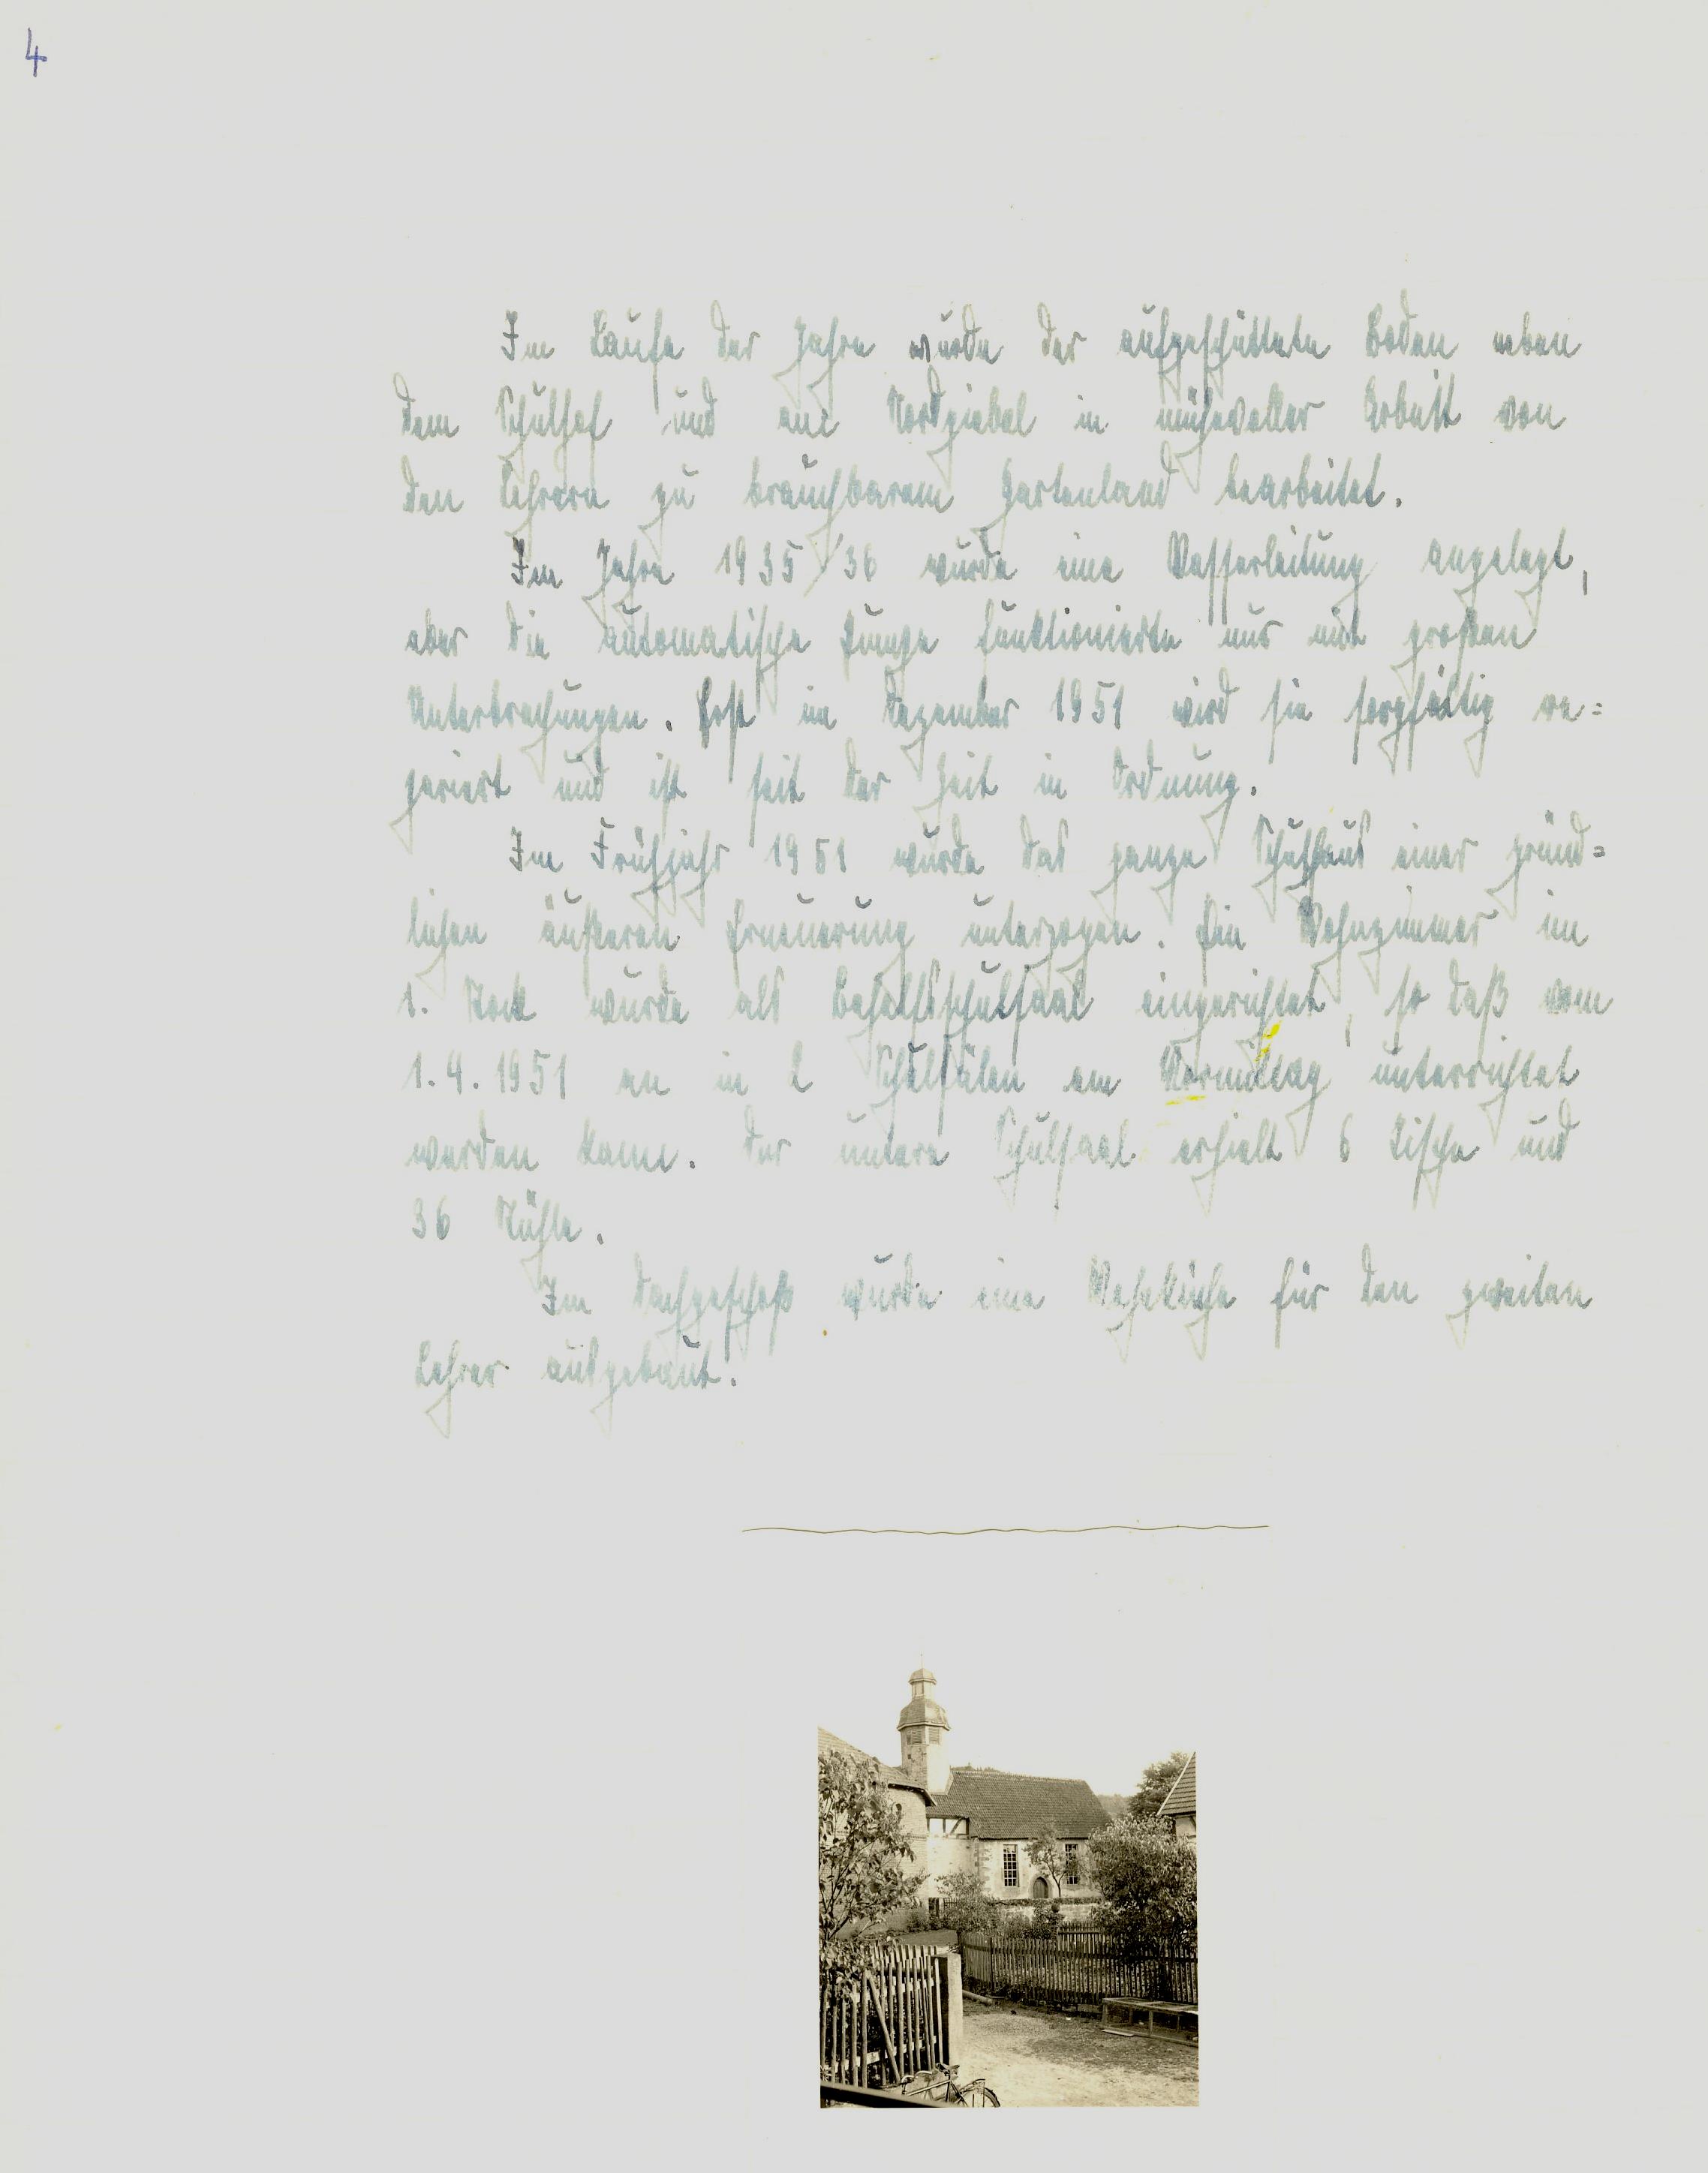 4
Im Laufe der Jahre wurde der aufgeschüttete Boden neben
dem Schulhof und am Nordgiebel in mühevoller Arbeit von
den Lehrern zu brauchbarem Gartenland bearbeitet.
Im Jahre 1935/36 wurde eine Wasserleitung angelegt,
aber die automatische Pumpe funktionierte nur mit großen
Unterbrechungen. Erst im Dezember 1951 wird sie sorgfältig re=
pariert und ist seit der Zeit in Ordnung.
Im Frühjahr 1951 wurde das ganze Schulhaus einer gründ=
lichen äußeren Erneuerung unterzogen. Ein Wohnzimmer im
1. Stock wurde als Behelfsschulsaal eingerichtet, so daß vom
1.4.1951 an in 2 Schulsälen am Vormittag unterrichtet
werden kann. Der untere Schulsaal erhielt 6 Tische und
36 Stühle.
Im Dachgeschoß wurde eine für den zweiten
Lehrer ausgebaut.